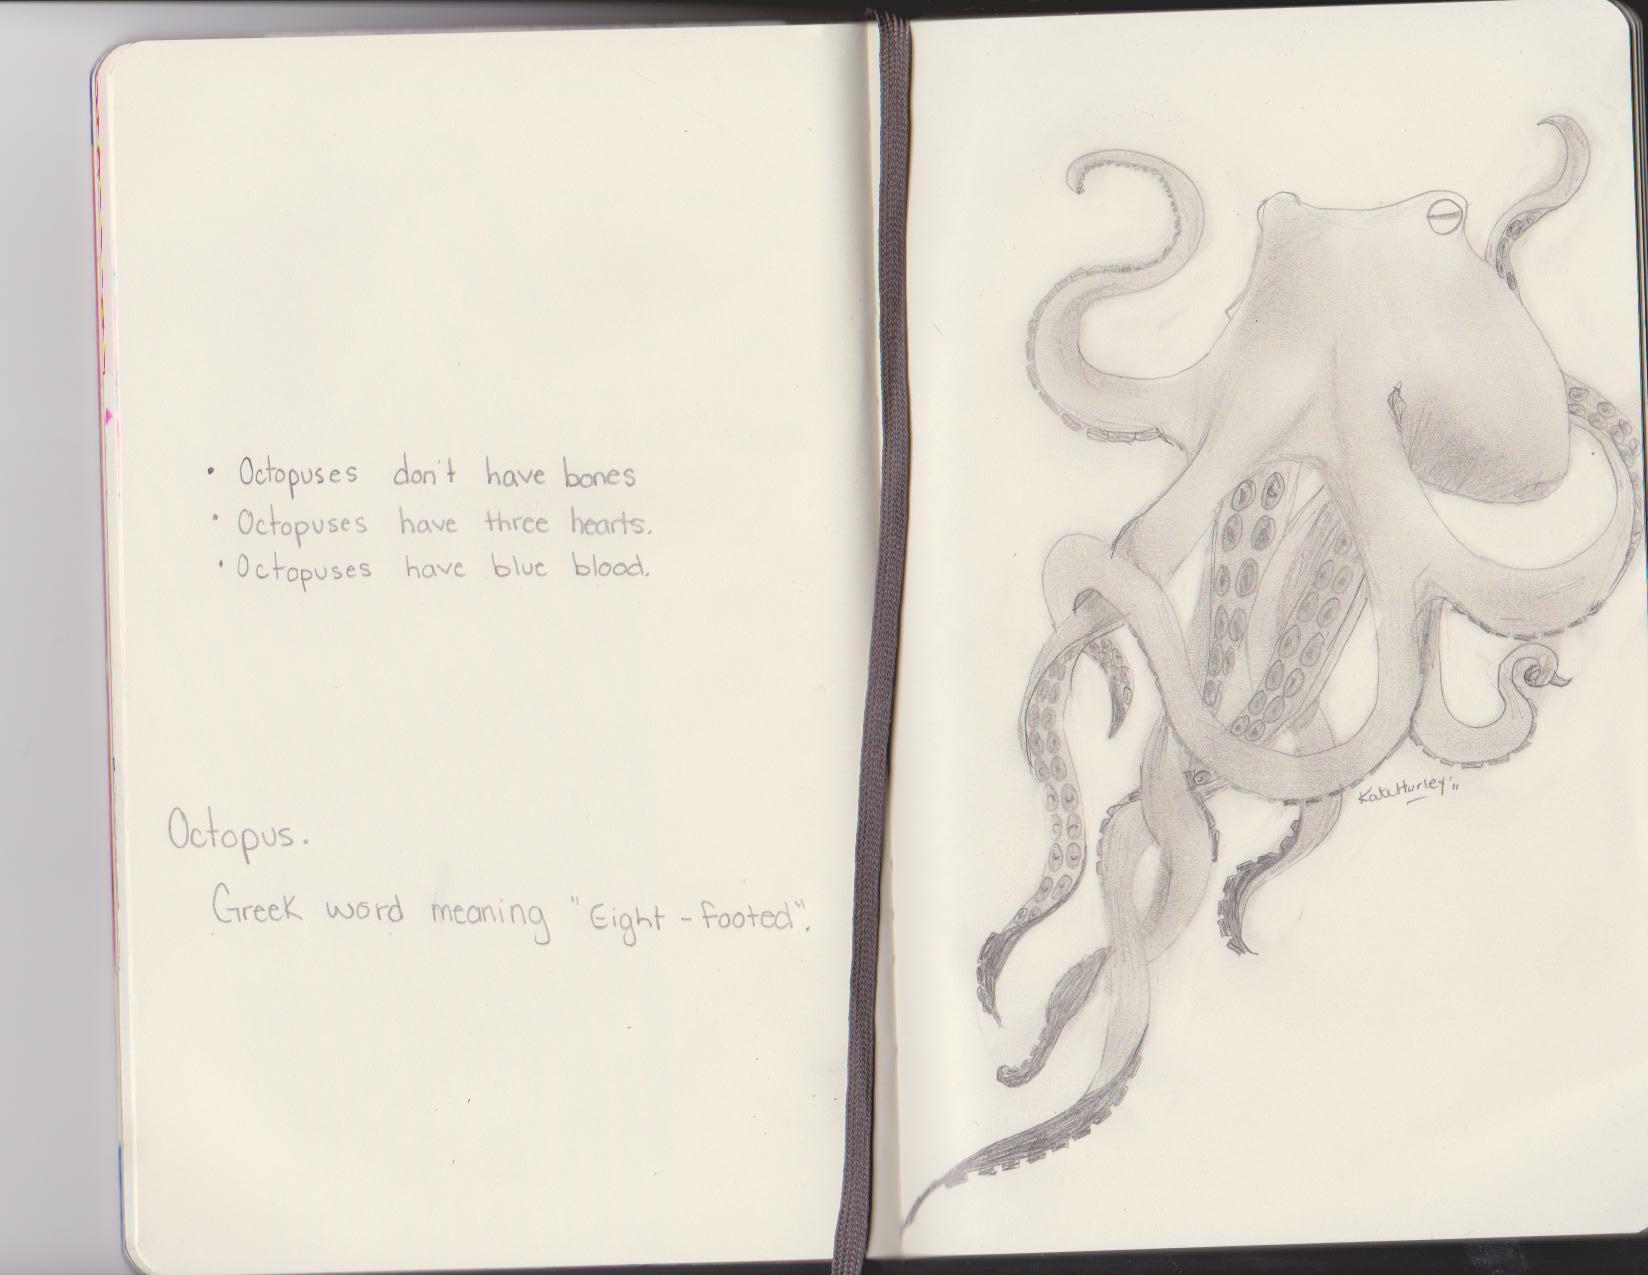 • Octopuses don't have bones
• Octopuses have three hearts.
• Octopuses have blue blood.
Octopus.
Greek word meaning "Eight-footed".
Kate Hurley '11